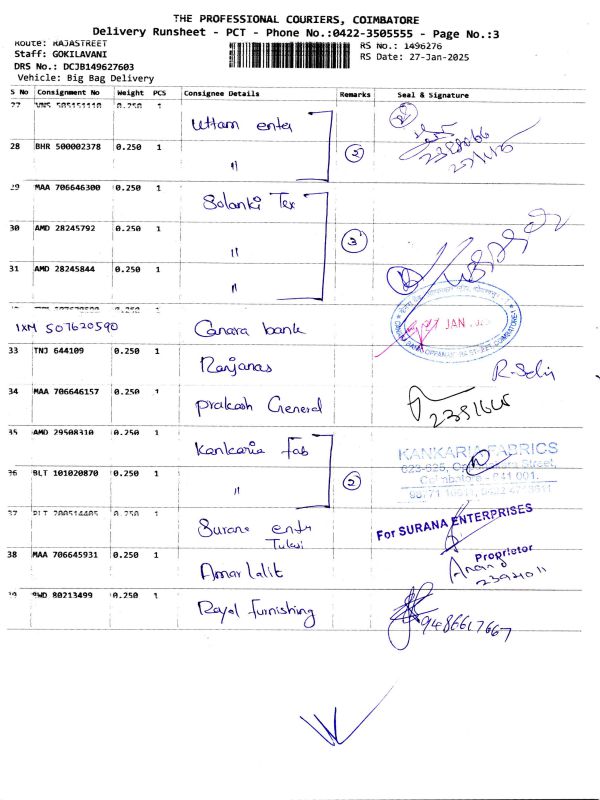 THE PROFESSIONAL COURIERS, COIMBATORE
Delivery Runsheet - PCT - Phone No.:0422-3505555 - Page No.:3
Route: RAJASTREET RS No.: 1496276
Staff: GOKILAVANI RS Date: 27-Jan-2025
DRS No.: DCJB149627603
Vehicle: Big Bag Delivery
S No Consignment No Weight PCS Consignee Details Remarks Seal & Signature
27 VNS 505151110 0.250 1 Uttam enter
28 BHR 500002378 0.250 1 " 2
29 MAA 706646300 0.250 1 Solanki Tex
30 AMD 28245792 0.250 1 " 3
31 AMD 28245844 0.250 1 "
IXM 507620590 Canara bank
27 JAN
33 TNJ 644109 0.250 1 Ranjanas
34 MAA 706646157 0.250 1 prakash General
35 AMD 29508310 0.250 1 Kankaria Fab KANKARIA FABRICS
36 BLT 101020870 0.250 1 " 2
623-625, Street,
Coimbatore - 641 001.
37 PLT 200514405 0.250 1 Surana entr For SURANA ENTERPRISES
Tulsi
Proprietor
38 MAA 706645931 0.250 1 Amar Lalit Anand
39 BWD 80213499 0.250 1 Royal Furnishing 9486617667